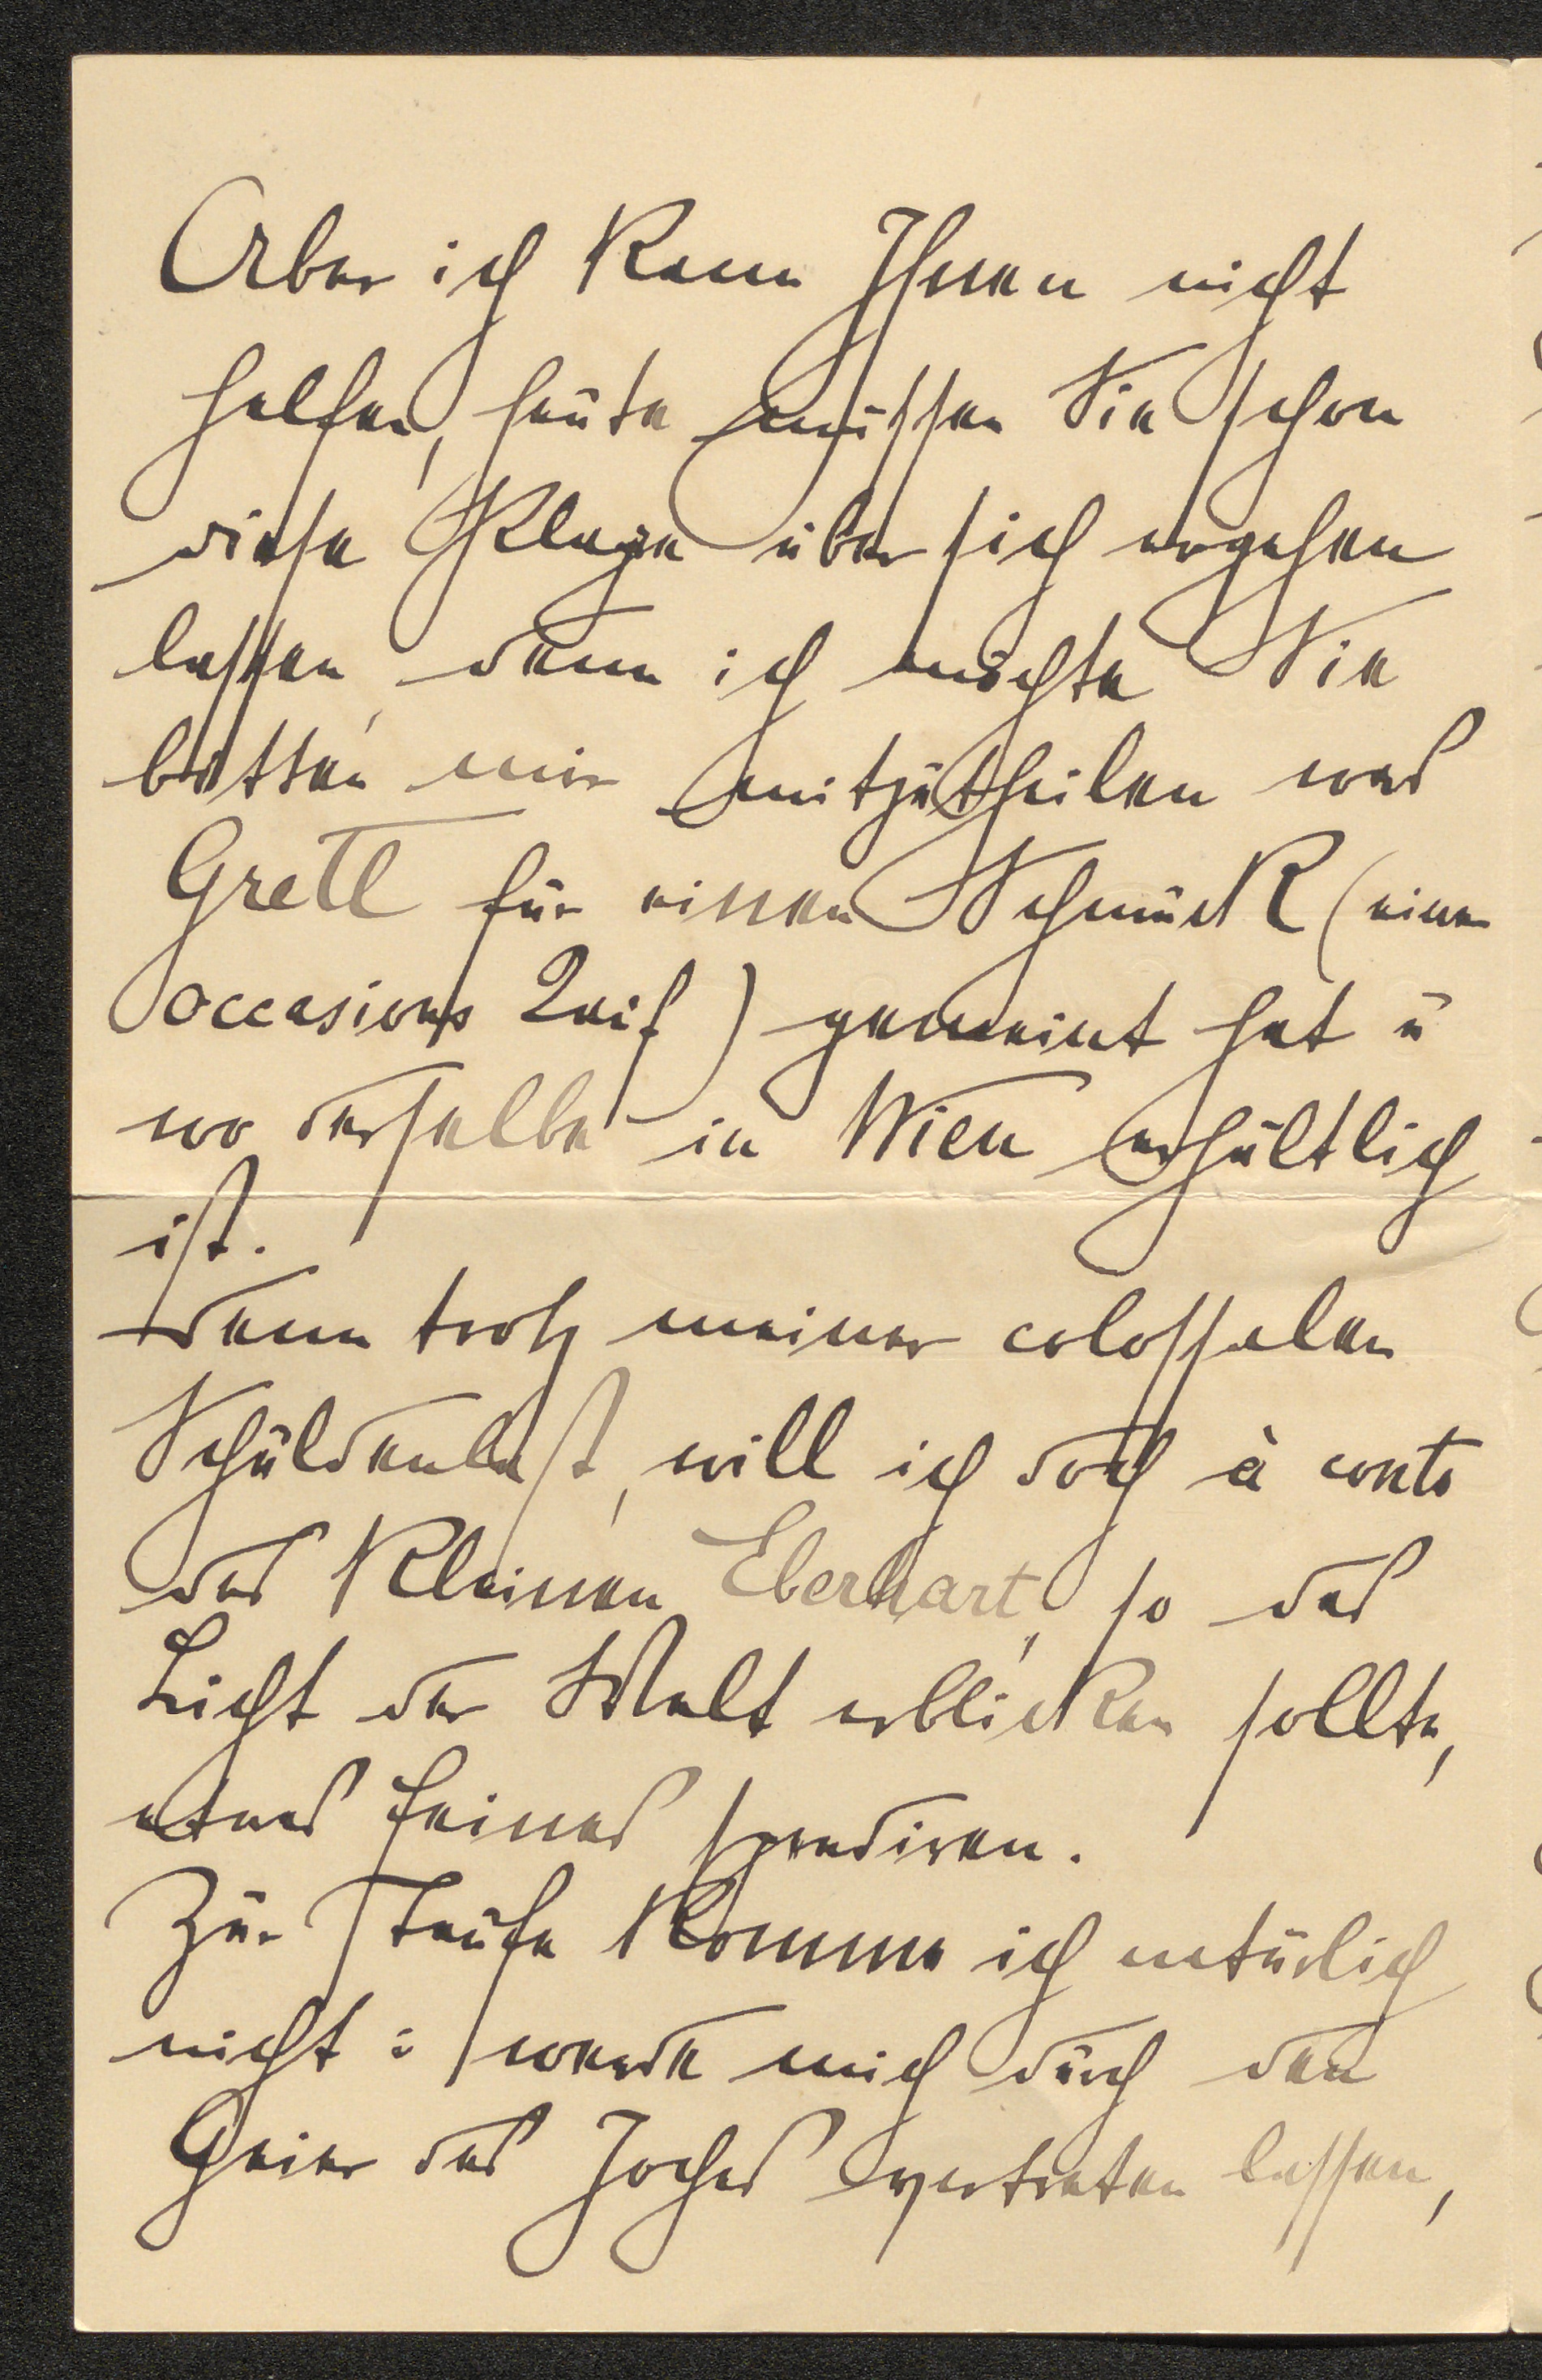 Aber ich kann Ihnen nicht
helfen, heute müssen Sie schon
diese Klage über sich ergehen
lassen, denn ich möchte Sie
bitten mir mitzutheilen was
Gretl für einen Schmuck (einen
occasions ) gemeint hat u
wo derselbe in Wien erhältlich
ist.
denn trotz meiner colossalen
Schuldenlast, will ich doch à conto
des kleinen Eberhart, so das
Licht der Welt erblicken sollte,
etwas feines spendiren.
Zur Taufe komme ich natürlich
nicht: werde mich durch den
Geier des Joches vertreten lassen,